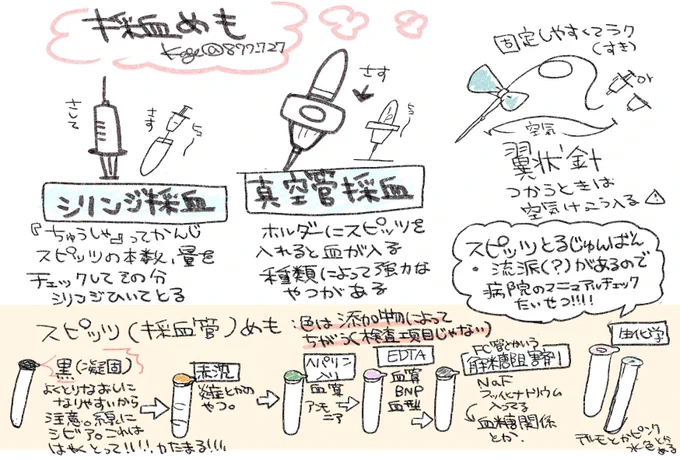 採血めも
さして
さす
シリンジ採血
『ちゅうしゃ』ってかんじ
スピッツの本数、量を
チェックしてその分
シリンジひいてとる
さす
真空管採血
ホルダーにスピッツを
入れると血が入る
種類によって強力な
やつがある
固定しやすくてラク
(すき)
or
空気
翼状針
つかうときは
空気けっこう入る
スピッツとるじゅんばん
・流派(?)があるので
病院のマニュアルチェック
たいせつ!!!!
スピッツ(採血管)めも:色は添加物によって
ちがう(検査項目じゃない)
黒(凝固)
よくとりなおしに
なりやすいから
注意。線に
シビア。これは
はやくとって!!!!かたまる!!!
赤沈
炎症とかの
やつ。
ヘパリン
入り
血算
アンモ
ニア
EDTA
血算
BNP
血型
FC管とかいう
解糖阻害剤
NaF
フッ化ナトリウム
入ってる
血糖関係
とか。
生化学
テルモとかピンク
水色とか
ある